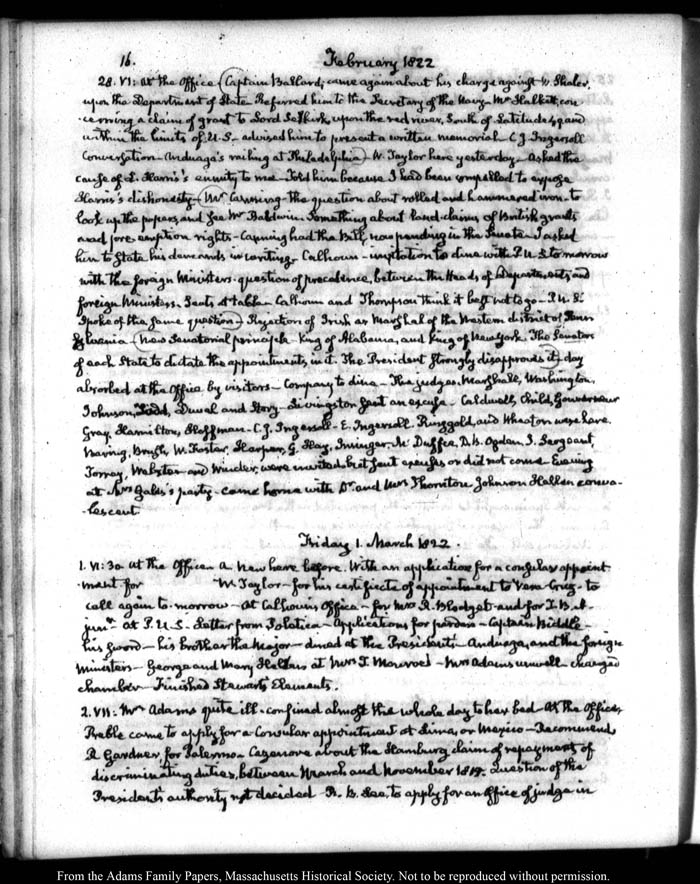 16. February 1822
28. VI: At the Office (Captain Ballard, came again about his charge against W. Shaler,
upon the Department of State. Referred him to the Secretary of the Navy Mr Halkett, con
cerning a claim of grant to Lord Selkirk, upon the red river, South of Latitude 49 and
within the limits of U.S. advised him to present a written memorial. C. J. Ingersoll
Conversation. Anduaga's railing at Philadelphia) W. Taylor here yesterday. Asked the
cause of L. Harris's enmity to me. Told him because I had been compelled to expose
Harris's dishonesty. (Mr Canning. The question about rolled and hammered iron. to
look up the papers, and see Mr Baldwin. Something about land claims of British grants
and pre-emption rights. Canning had the Bill, now pending in the Senate. I asked
him to State his demands in writing. Calhoun. invitation to dine with P.U.S. tomorrow
with the foreign Ministers. question of precedence, between the Heads of Departments, and
foreign Ministers. Seats at table. Calhoun and Thompson think it best not to go. P.U.S.
spoke of the same question.) Rejection of Irish as Marshal of the Western district of Penn
sylvania (New Senatorial principle. King of Alabama, and King of New York. The Senators
of each State to dictate the appointments, in it. The President strongly disapproves it) day
absorbed at the Office by visitors. Company to dine. The judges. Marshall, Washington,
Johnson, Todd, Duval and Story. Livingston sent an excuse. Caldwell, Child, Gouverneur
Gray, Hamilton, Hoffman. C. J. Ingersoll. E. Ingersoll. Ringgold, and Wheaton were here.
Waring, Brush, W. Foster, Harper, G. Hay, Insinger, McDuffee, D. B. Ogden, J. Sergeant,
Torray, Webster and Winder, were invited, but sent excuses or did not come. Evening
at Mrs Gales's party. came home with Dr and Mrs Thornton. Johnson Hellen conva-
lescent.
Friday 1. March 1822.
1. VI:30 at the Office. A. New here before. With an application for a consular appoint
ment for W. Taylor. for his certificate of appointment to Vera Cruz. to
call again to-morrow. At Calhoun's Office. for Mrs R. Blodget. and for T. B. A.
junr. At P.U.S. Letter from Poletica. Applications for pardons. Captain Biddle.
his sword. his brother the Major. dined at the President's. Anduaga, and the foreign
Ministers. George and Mary Hellen at Mrs J. Monroe's. Mrs Adams unwell. changed
chamber. Finished Stewart's Elements.
2. VII. Mrs Adams quite ill. confined almost the whole day to her bed. At the Office,
Preble came to apply for a Consular appointment at Lima, or Mexico. Recommend
R. Gardner, for Palermo. Cazenove about the Hamburg claim of repayment of
discriminating duties, between March and November 1817. Question of the
President's authority not decided. R. B. Lee, to apply for an Office of judge in
From the Adams Family Papers, Massachusetts Historical Society. Not to be reproduced without permission.